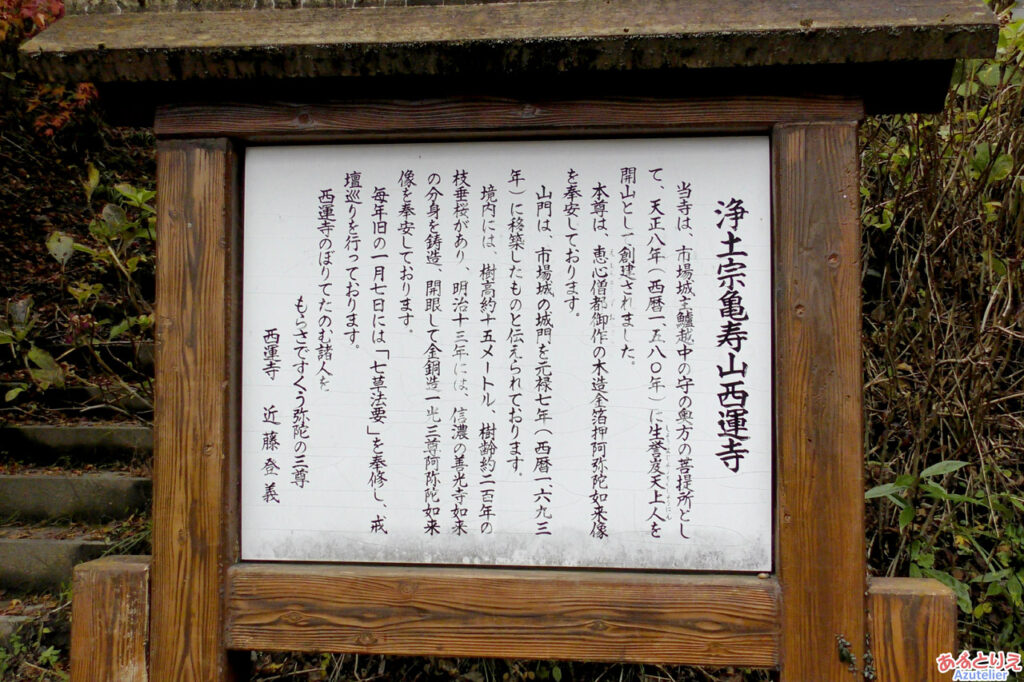 浄土宗亀寿山西運寺
当寺は、市場城主鱸越中の守の奥方の菩提所とし
て、天正八年(西暦一、五八〇年)に生誉度天上人を
開山として創建されました。
本尊は、恵心僧都御作の木造金箔押阿弥陀如来像
を奉安しております。
山門は、市場城の城門を元禄七年(西暦一、六九三
年)に移築したものと伝えられております。
境内には、樹高約十五メートル、樹齢約二百年の
枝垂桜があり、明治十三年には、信濃の善光寺如来
の分身を鋳造、開眼して金銅造一光三尊阿弥陀如来
像を奉安しております。
毎年旧の一月七日には「七草法要」を奉修し、戒
壇巡りを行っております。
西運寺のぼりてたのむ諸人を
もらさですくう弥陀の三尊
西運寺 近藤登義
あるとりえ
Azutelier